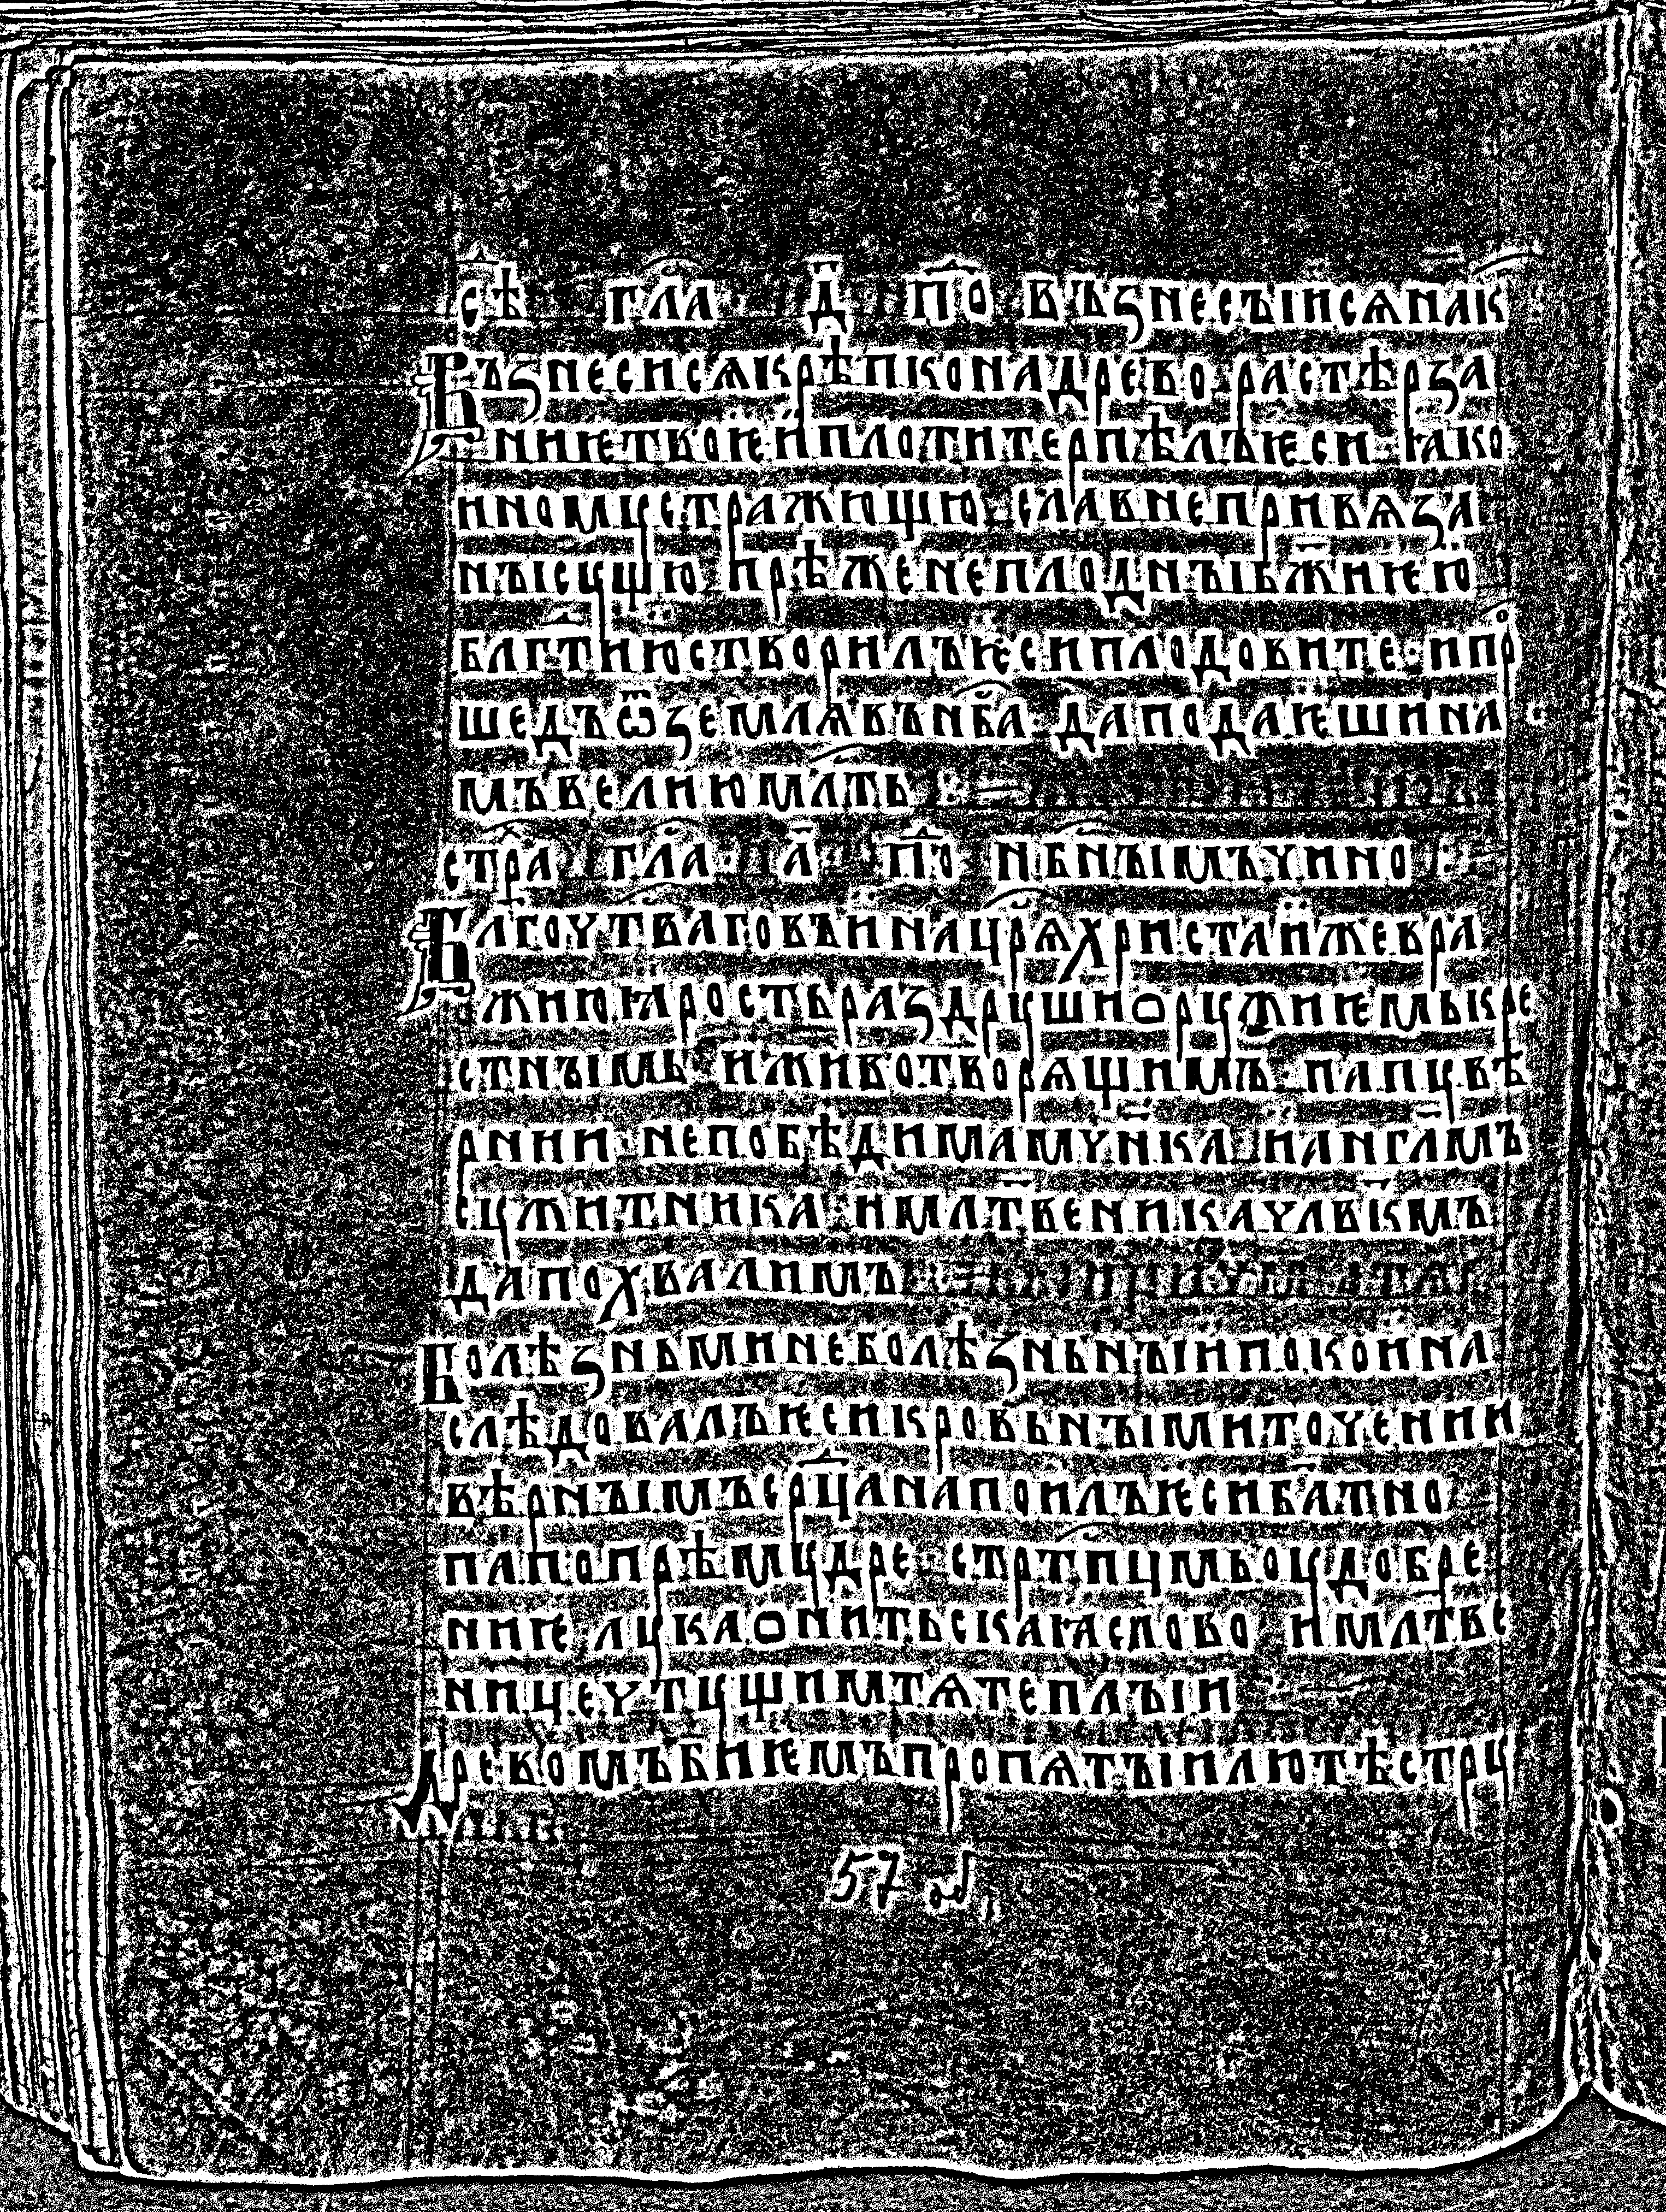 сѣд҇ гл҃а д҃ по҇д възнесыисѧнак
Възнесисѧкрѣпконадрево · растѣрза
ниѥтвоѥ · иплотитерпѣлъѥси · ꙗко
иномꙋстражющю · славнепривѧза
ныисꙋщю · прѣженеплодныꙗб҃жниѥю
блг҇тиюстворилъѥсиплодовите · ипро
шедъѿземлѧвън҃ба · даподаѥшина
мъвелиюмл҃ть :
стр҇ха гл҃а а҃ по҇д нб҃нымъчино :
Блгочтваговъинацр҃ѧхристаижевра
жиюꙗростьраздрꙋшиорꙋжиѥмькре
стнымь · иживотворѧщимъ · папꙋвѣ
рнии · непобѣдимамчн҃ка · ианг҃лмъ
сꙋжитника · имлт҃веникачлв҃кмъ
дапохвалимъ
Болѣзньминеболѣзньныипокоина
слѣдовалъѥсикровьнымиточении
вѣрнымъср҇дцанапоилъѥсиб҃лтно
папопрѣмꙋдре · стрт҃пцмьоꙋдобре
ниѥ лꙋкаонитьскаꙗслово · имлтве
ничечтꙋщимтѧтеплыи :
Древомъбиѥмъпропѧтыилютѣстрꙋ
57 об,